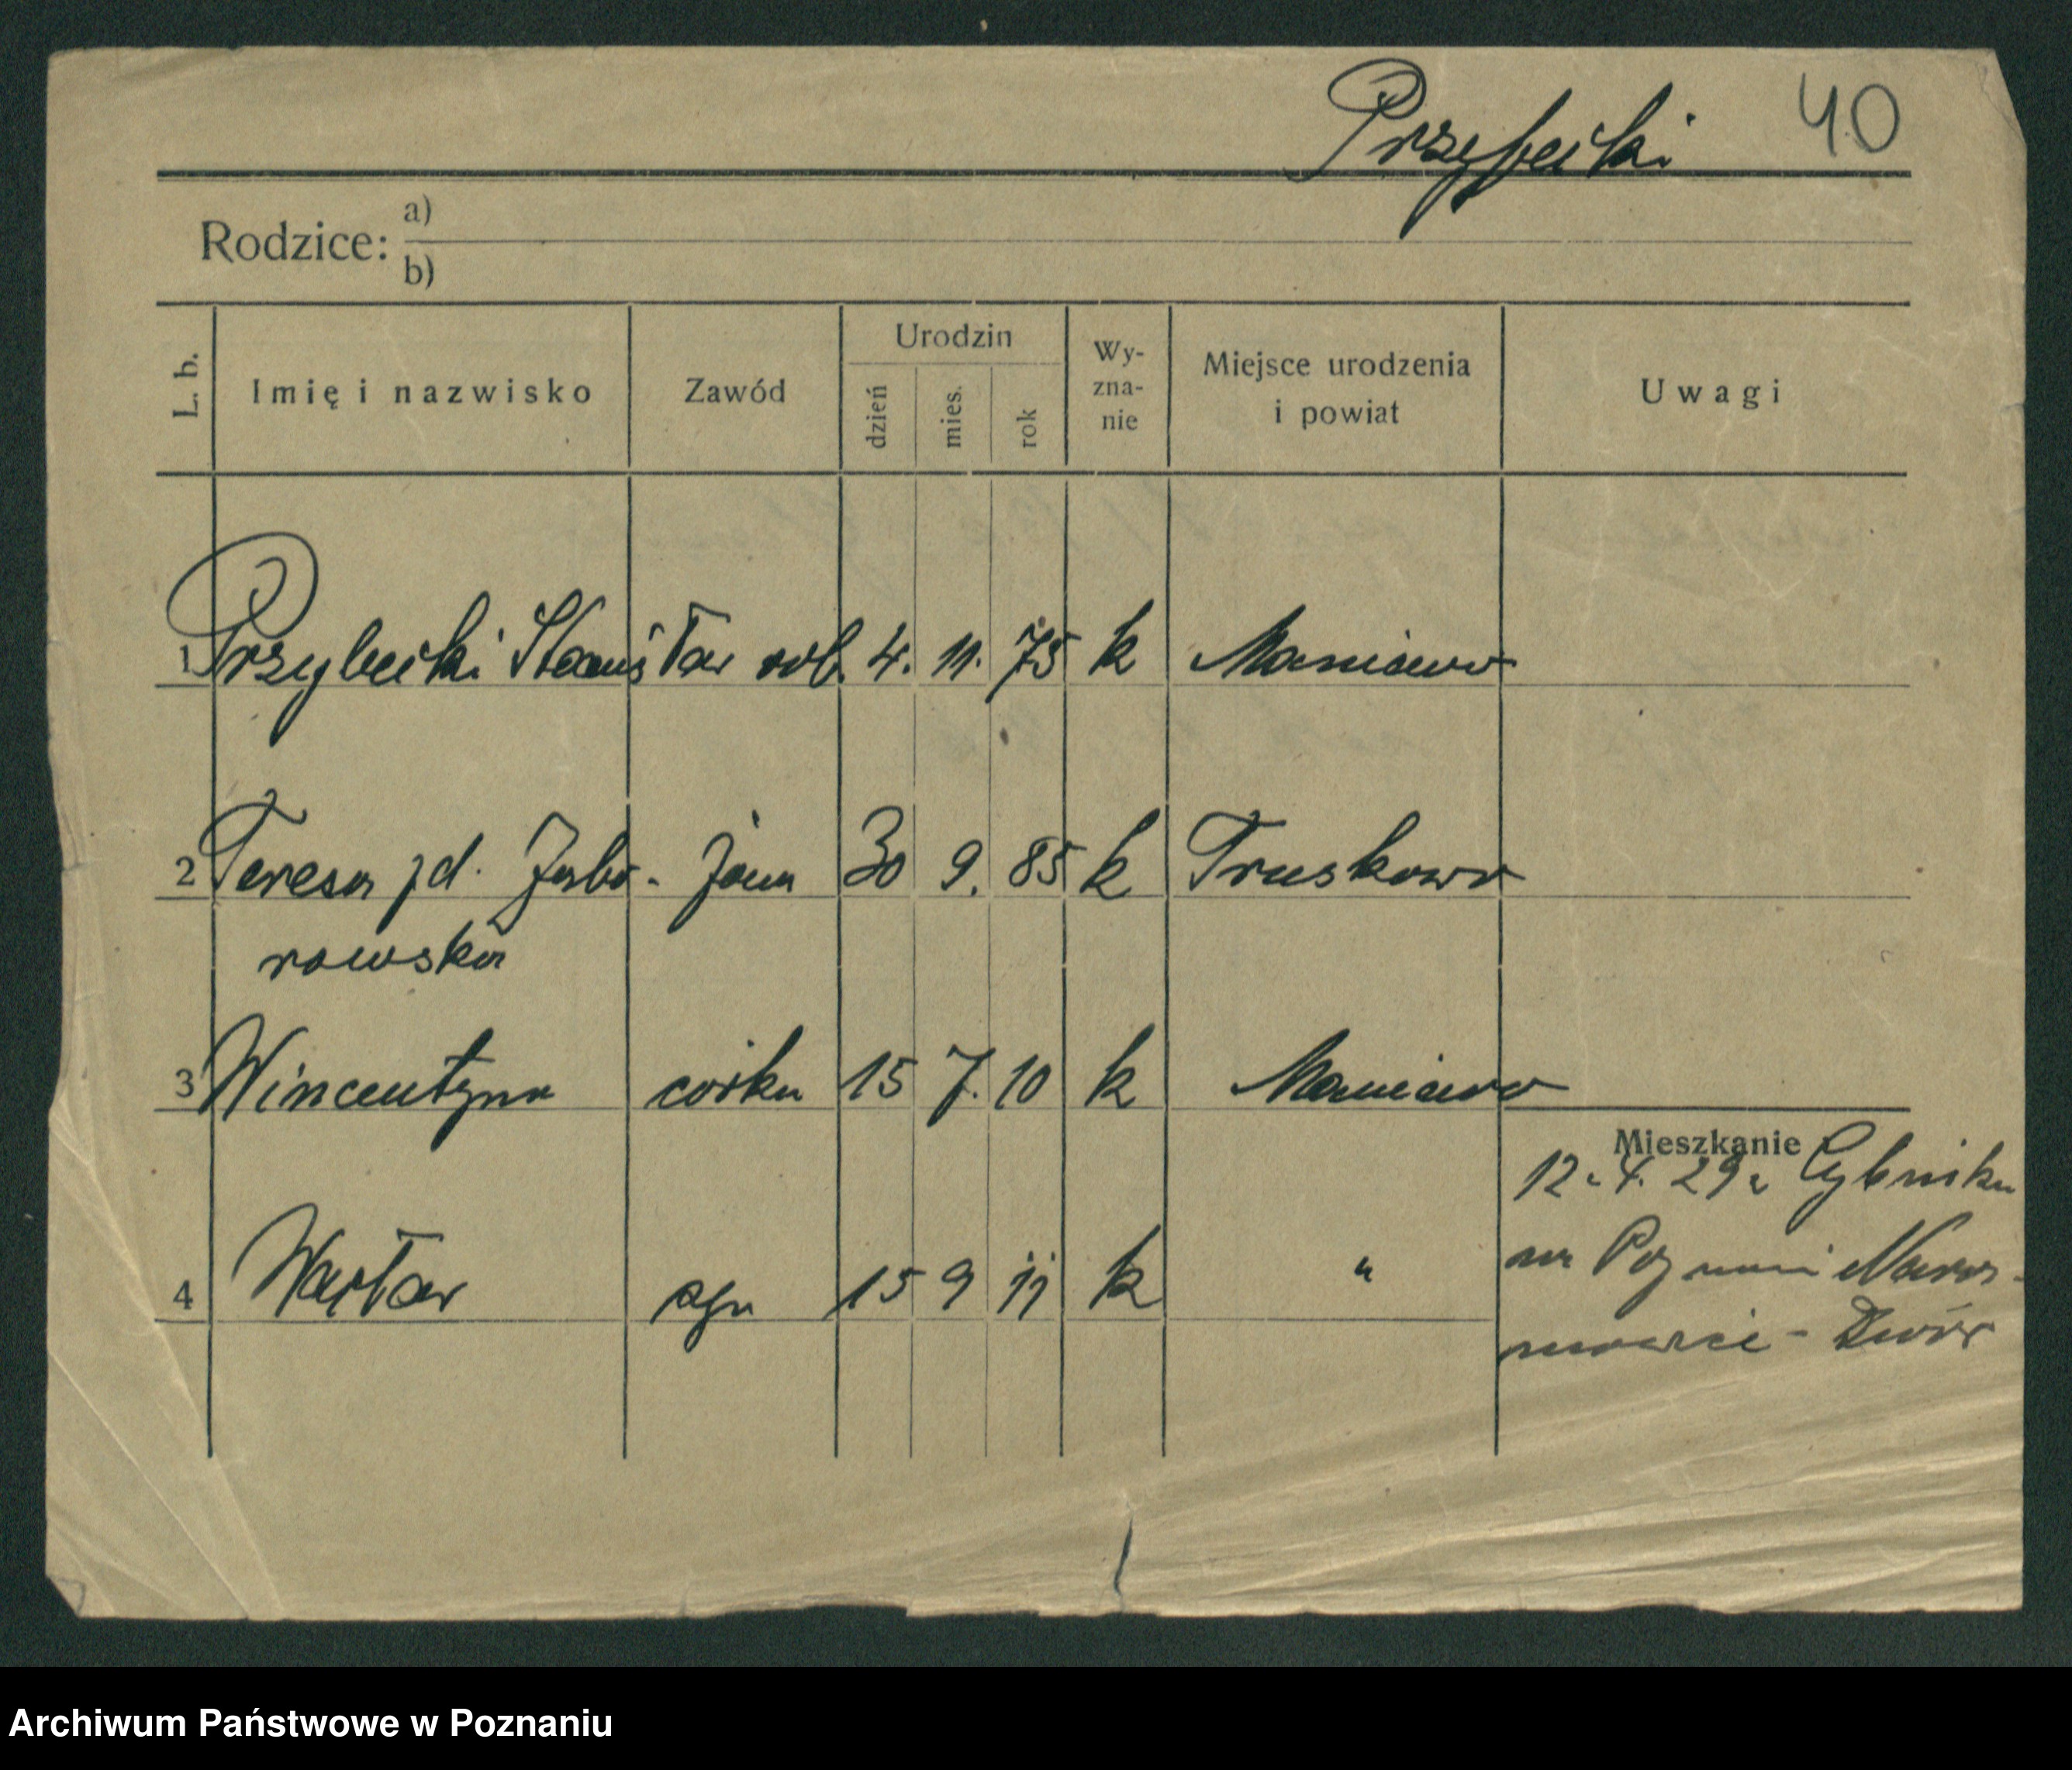 Przybecki 40
Rodzice: a)
b)
L. b.
Imię i nazwisko
Zawód
Urodzin
dzień
mies.
rok
Wy-
zna-
nie
Miejsce urodzenia
i powiat
Uwagi
1 Przybecki Stanisław rob. 4. 11. 75 k Maniewo
2 Teresa zd. Jabo- żona 30 9. 85 k Truskowo
rowska
3 Wincentyna córka 15 7. 10 k Maniewo
Mieszkanie
12. 4. 29 z Rybnika
4 Wacław syn 15 9 11 k "
Dwór
Archiwum Państwowe w Poznaniu